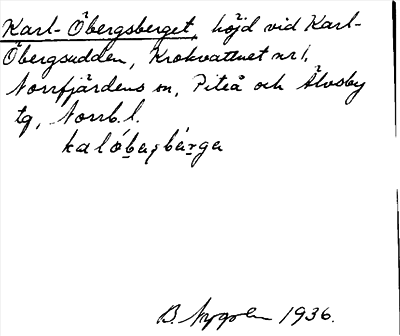 Karl-Öbergsberget, höjd vid Karl-
Öbergsudden, Krokvattnet nr 1,
Norrfjärdens sn, Piteå och Älvsby
tg, Norrb. l.
kalóbærsbárga
B. Nygren 1936.